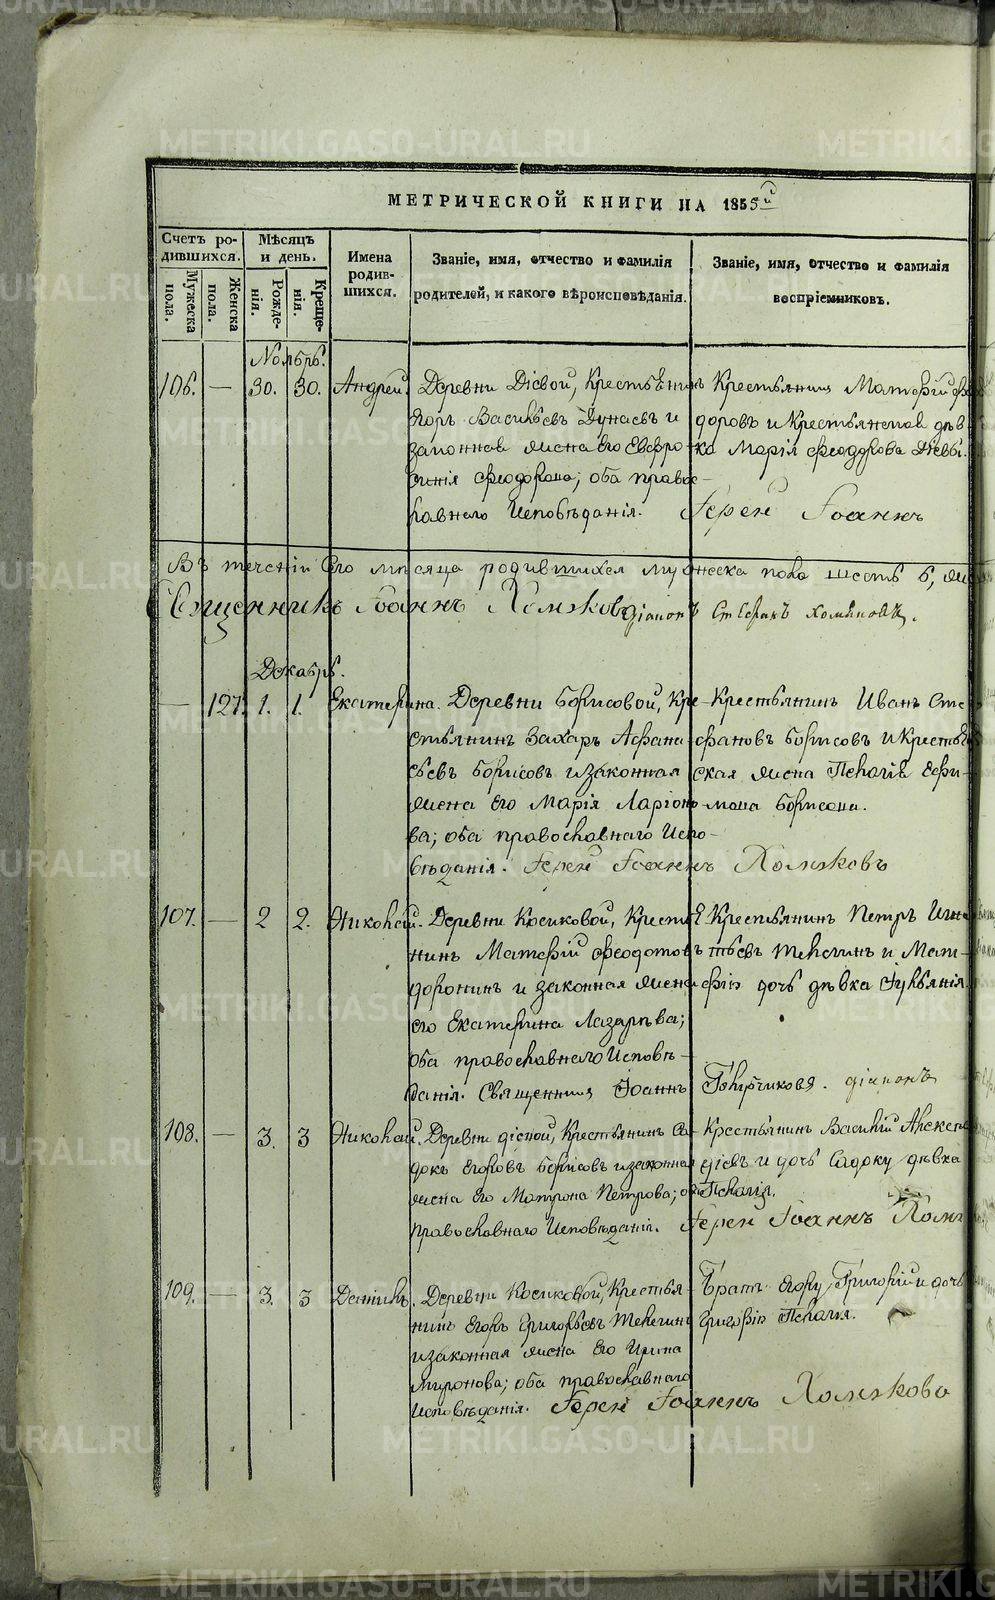 METRIKI.GASO-URAL.RU
МЕТРИЧЕСКОЙ КНИГИ НА 1855й
Счетъ ро-
дившихся.
Мужеска
пола.
Женска
пола.
Мѣсяцъ
и день.
Рожде-
нія.
Креще-
нія.
Имена
родив-
шихся.
Званіе, имя, отчество и фамилія
родителей, и какого вѣроисповѣданія.
Званіе, имя, отчество и фамилія
воспріемниковъ.
Ноябрь.
106. — 30. 30. Андрей. Деревни Дiевой, Крестьянинъ
Егоръ Васильевъ Дунаевъ и
законная жена его Евфро-
синія Феодорова; оба право-
славнаго Исповѣданія.
Крестьянинъ Матфій Фе
доровъ и Крестьянская дѣв-
ка Марія Феодорова Дiевы.
Іерей Іоаннъ
Въ теченіи сего мѣсяца родившихся мужеска пола шесть 6,
Священникъ Іоаннъ Хомяковъ діаконъ Стефанъ Хомяковъ.
Декабрь.
— 127. 1. 1. Екатерина. Деревни Борисовой, Кре-
стьянинъ Захаръ Афана-
сьевъ Борисовъ и законная
жена его Марія Ларіоно-
ва; оба православнаго Испо-
вѣданія. Іерей Іоаннъ Хомяковъ
Крестьянинъ Иванъ Сте-
фановъ Борисовъ и Крестьян
ская жена Пелагія Ефи-
мова Борисова.
107. — 2 2. Николай. Деревни Косиковой, Крестья
нинъ Матфій Феодотовъ
доронинъ и законная жена
его Екатерина Лазарѣва;
оба православнаго Исповѣ-
данія. Священникъ Іоаннъ
Крестьянинъ Петръ Игна
тьевъ Телегинъ и Мат-
фія дочь дѣвка Іуліанія.
діаконъ
108. — 3. 3 Николай. Деревни дiевой, Крестьянинъ Са-
докъ Егоровъ Борисовъ и законная
жена его Матрона Петрова; оба
Православнаго Исповѣданія.
Крестьянинъ Василій Алексе
евъ и дочь Садоку дѣвка
Пелагія.
Іерей Іоаннъ Хомя
109. — 3. 3 Деревни Косиковой, Крестья-
нинъ Егоръ Григорьевъ Телегинъ
и законная жена его Ирина
Миронова; оба православнаго
Исповѣданія. Іерей Іоаннъ Хомяковъ
Братъ Егору, Григорій и дочь
Григорія Пелагія.